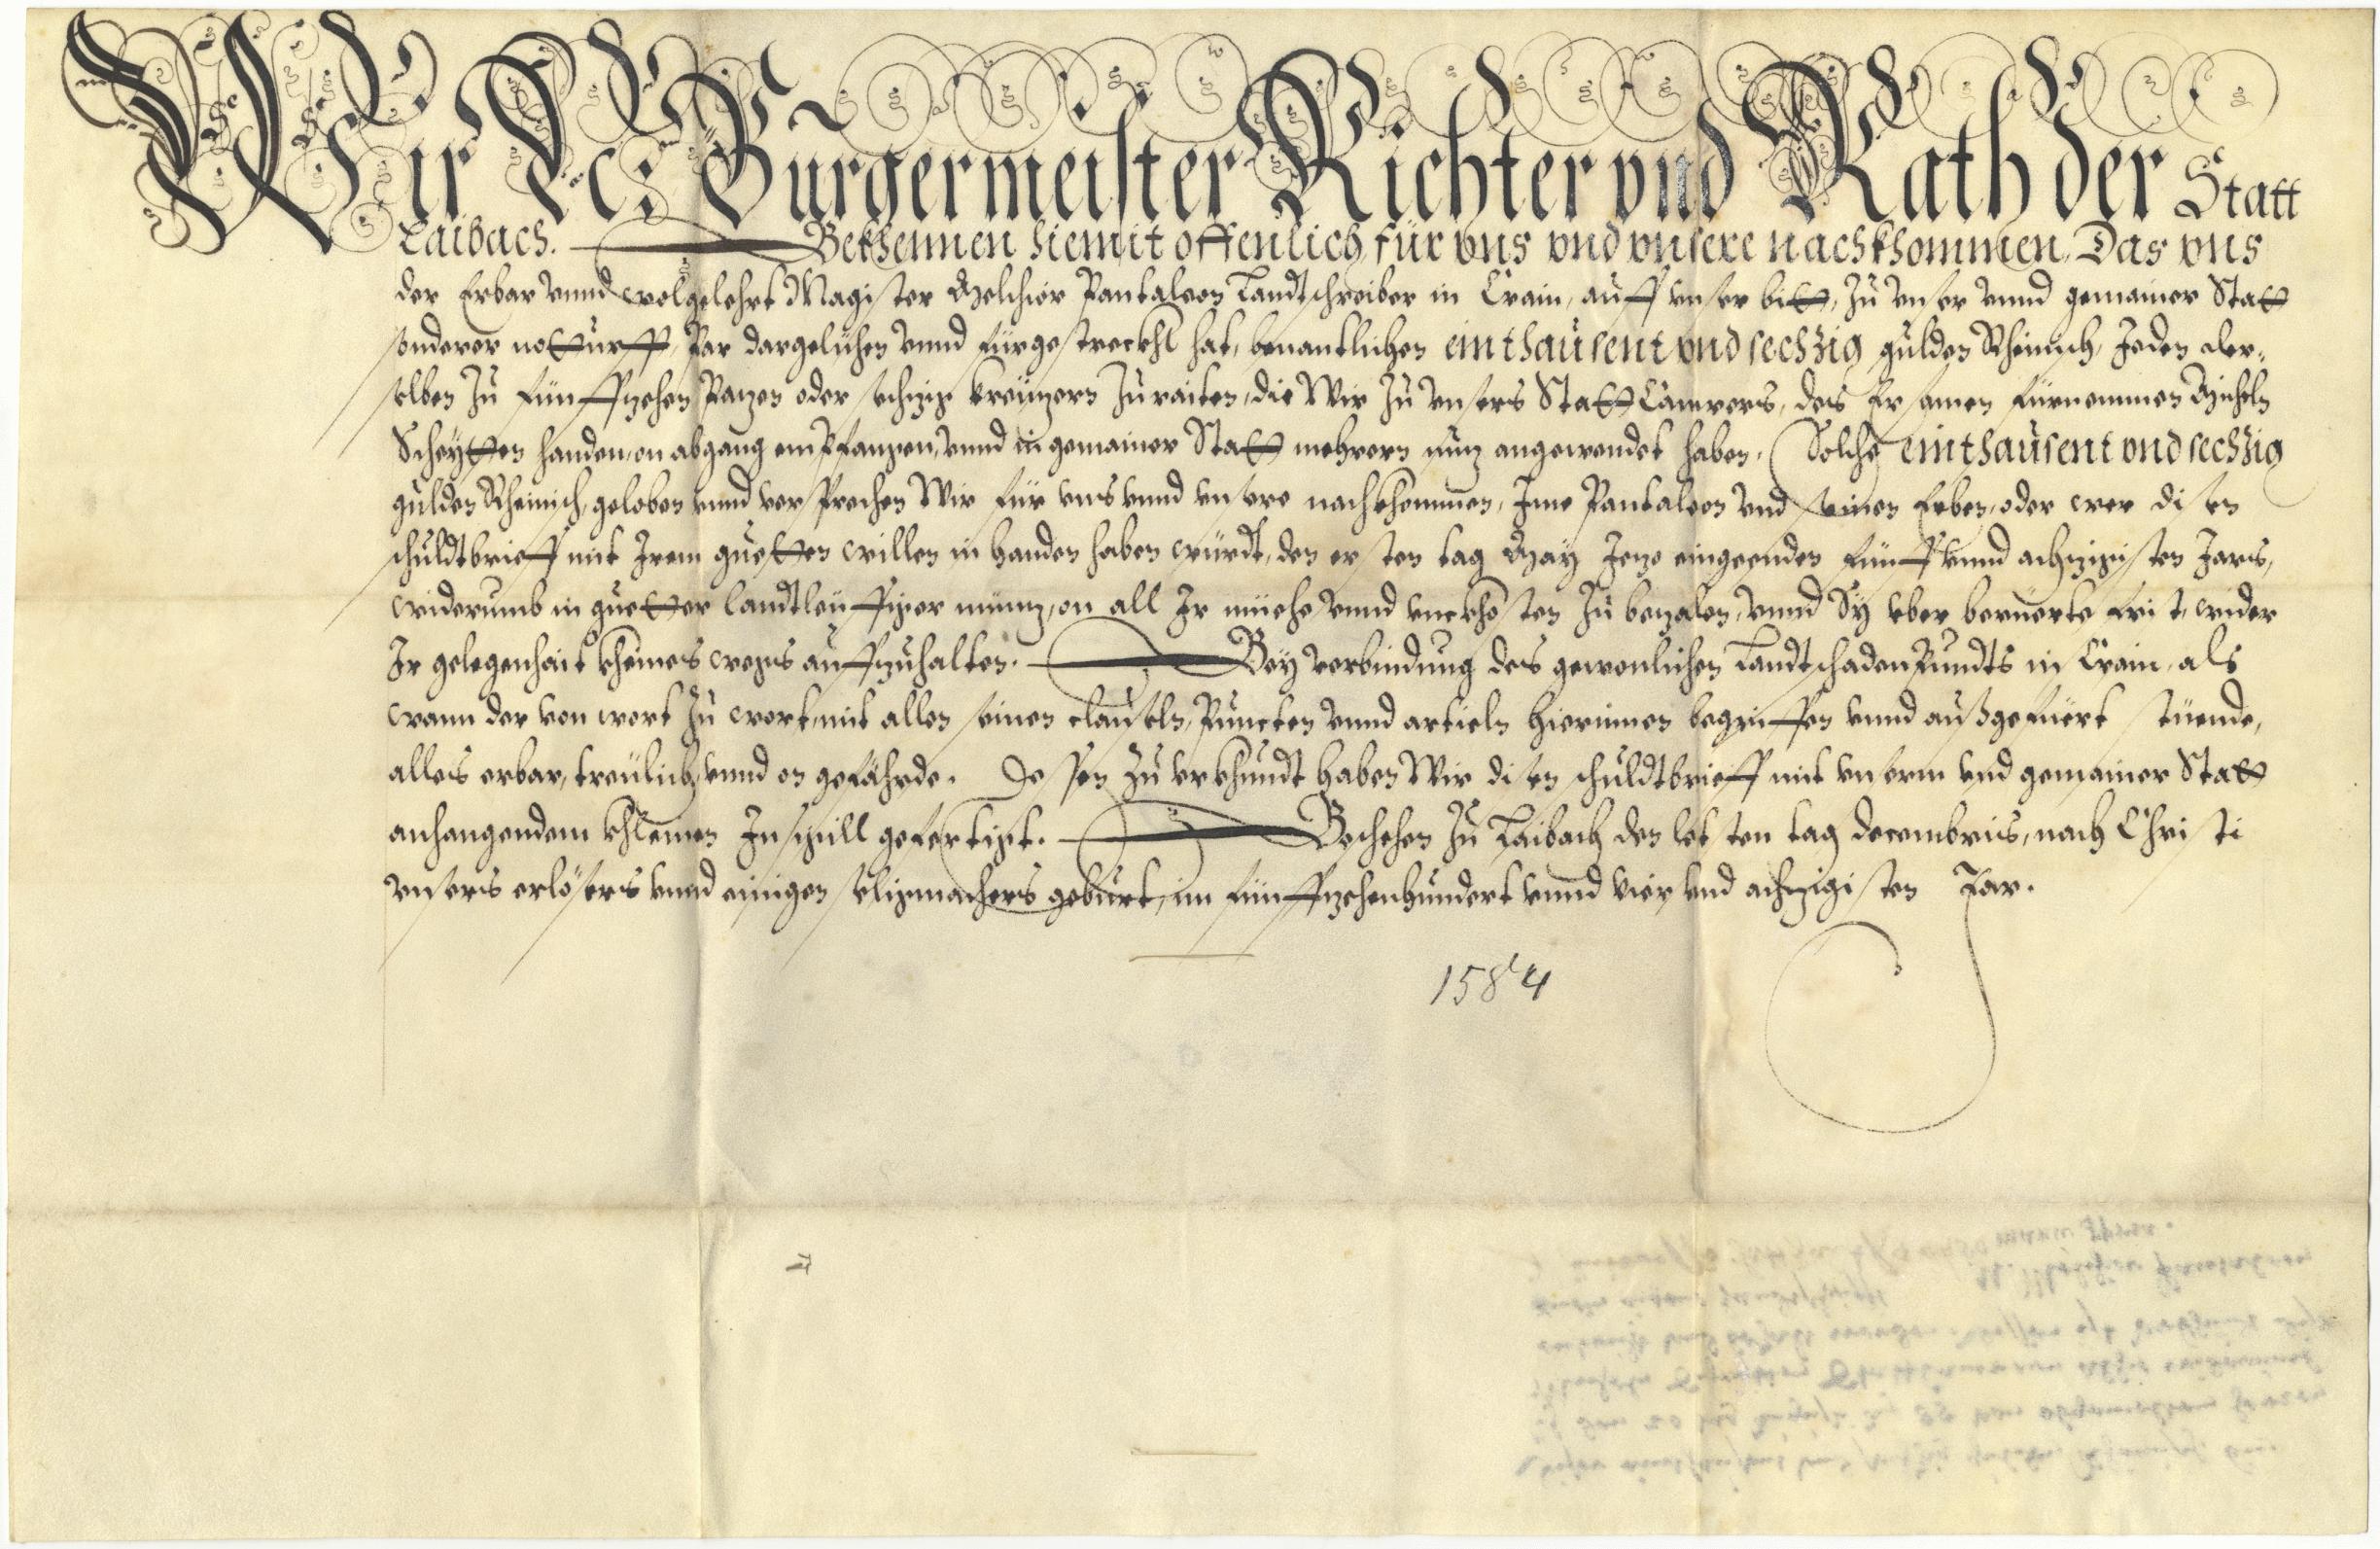 Wir N: Burgermeister Richter vnd Rath der Statt
Laibach. Bekhennen hiemit offenlich für vns vnd vnsere nachkhommen, Das vns
der Erbar vnnd wolgelehrt Magister Melchior Pantaleon Landtschreiber in Crain, auff vnser bitt, zu vnser vnnd gemainer Statt
sonderer notturfft, Par dargelichen vnnd fürgestreckht hat, benantlichen einthausent vnd sechzig gulden Rheinisch, Jeden der-
selben zu fünffzehen Pazen oder sechzig kreuzern zuraiten, die Wir zu vnsers Statt Camrers, des Ersamen fürnemmen Micheln
Scheytten handen, on abgang empfangen, vnnd in gemainer Statt mehrern nuz angewendet haben. Solche einthausent vnd sechzig
gulden Rheinisch, geloben vnnd versprechen Wir für vns vnnd vnsere nachkhommen, Jme Pantaleon vnd seinen Erben, oder wer disen
schuldtbrieff mit Jrem guetten willen in handen haben würdt, den ersten tag May Jezo eingeenden fünff vnnd achzigisten Jars,
widerumb in guetter landtleuffiger münz, on all Jr müehe vnnd vnckhosten zu bezalen, vnnd Sy vber beruerte frist, wider
Jr gelegenhait kheines wegs auffzuhalten. Bey verbindung des gewonlichen Landtschadenpundts in Crain, als
wann der von wort zu wort, mit allen seinen clauseln, Puncten vnnd articln hierinnen begriffen vnnd außgefüert stüende,
alles erbar, treulich, vnnd on gefährde. Dessen zu vrkhundt haben Wir disen schuldtbrieff mit vnserm vnd gemainer Statt
anhangendem khlainen Jnsigill gefertigt. Beschehen zu Laibach den letsten tag decembris, nach Christi
vnsers erlösers vnnd ainigen seligmachers geburt, im fünffzehenhundert vnnd vier vnd achzigisten Jar.
1584